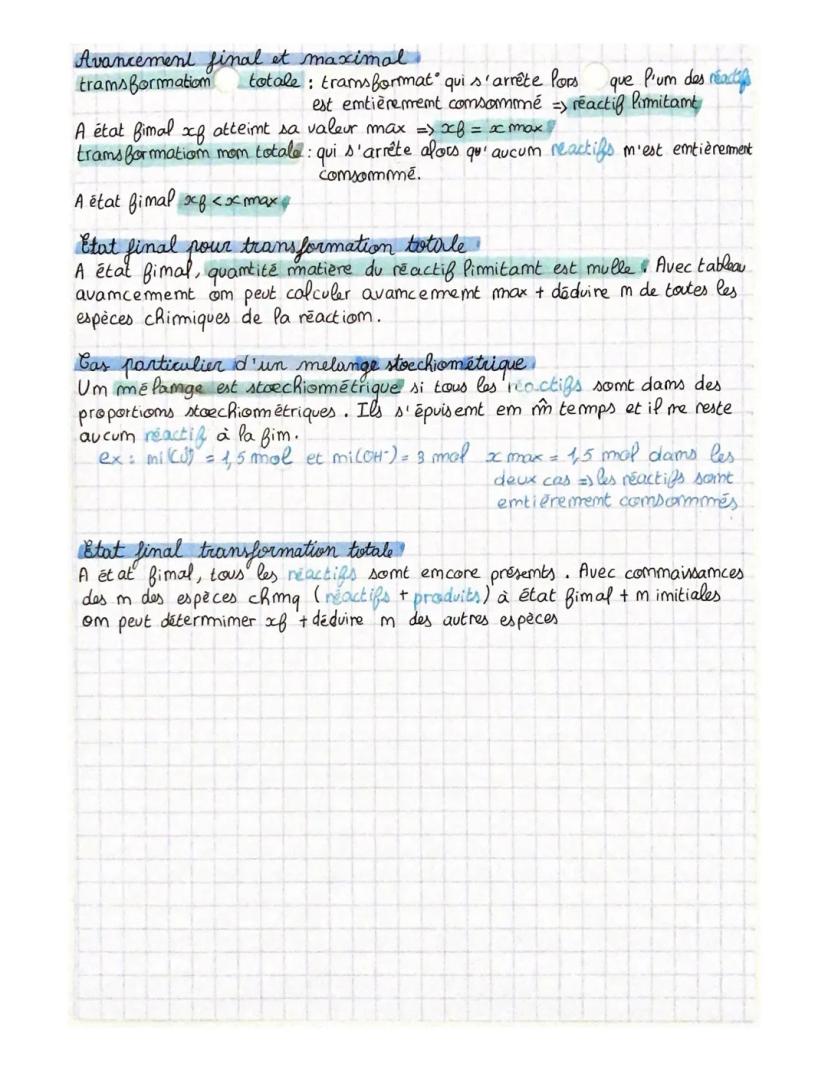 Avancement final et maximal
transformation totale : transformat° qui s'arrête lors que l'un des réactifs
est entièrement consommé => réactif limitant
A état final xf atteint sa valeur max => xf = x max
transformation non totale : qui s'arrête alors qu'aucun reactifs n'est entièrement
consommé.
A état final xf < x max
Etat final pour transformation totale
A état final, quantité matière du réactif limitant est nulle. Avec tableau
avancement on peut calculer avancement max + déduire n de toutes les
espèces chimiques de la réaction.
Cas particulier d'un melange stoechiométrique
Un mélange est stoechiométrique si tous les réactifs sont dans des
proportions stoechiométriques. Ils s'épuisent en m̂ temps et il ne reste
aucun réactif à la fin.
ex : ni( ) = 1,5 mol et ni(OH-) = 3 mol x max = 1,5 mol dans les
deux cas => les réactifs sont
entièrement consommés
Etat final transformation totale
A état final, tous les réactifs sont encore présents. Avec connaissances
des n des espèces chmq (réactifs + produits) à état final + n initiales
on peut déterminer xf + déduire n des autres espèces